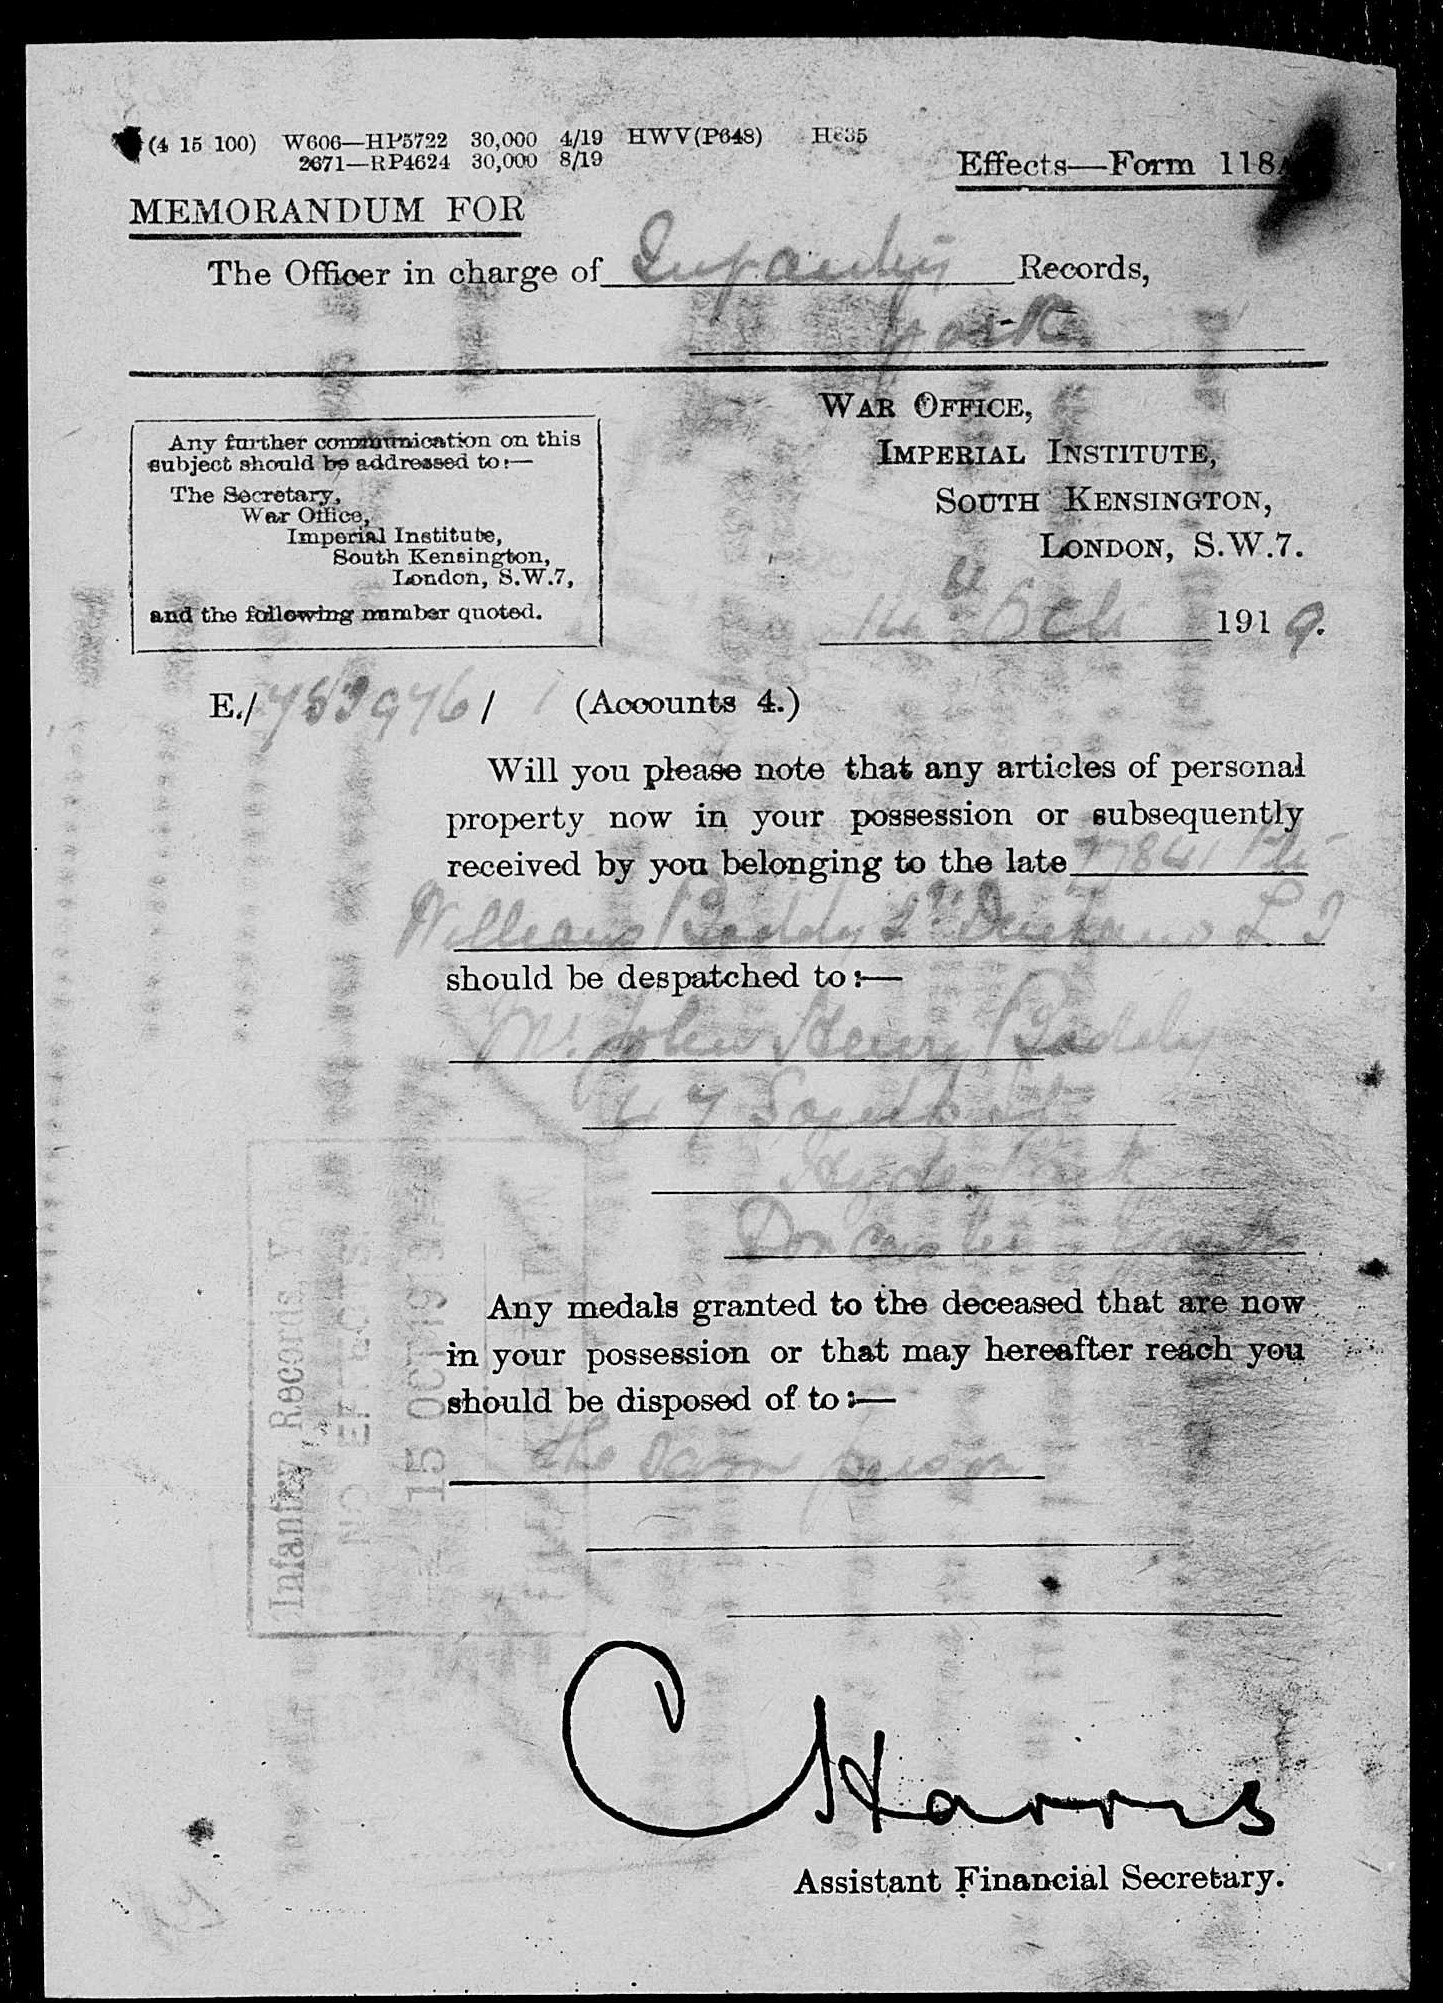 (4 15 100) W606—HP5722 30,000 4/19 HWV(P648) H635
2671—RP4624 30,000 8/19
Effects—Form 118A
MEMORANDUM FOR
The Officer in charge of Infantry Records,
York
WAR OFFICE,
IMPERIAL INSTITUTE,
SOUTH KENSINGTON,
LONDON, S.W.7.
Any further communication on this
subject should be addressed to:—
The Secretary,
War Office,
Imperial Institute,
South Kensington,
London, S.W.7,
and the following number quoted.
14th Oct 1919.
E./ / (Accounts 4.)
Will you please note that any articles of personal
property now in your possession or subsequently
received by you belonging to the late Pte
William Baddy 2nd Durham L I
should be despatched to:—
Mr. John Henry Baddy
47 South St
Hyde Park
Doncaster
Any medals granted to the deceased that are now
in your possession or that may hereafter reach you
should be disposed of to:—
the same person
Infantry Records, York
NO EFFECTS
15 OCT 1919
C Harris
Assistant Financial Secretary.